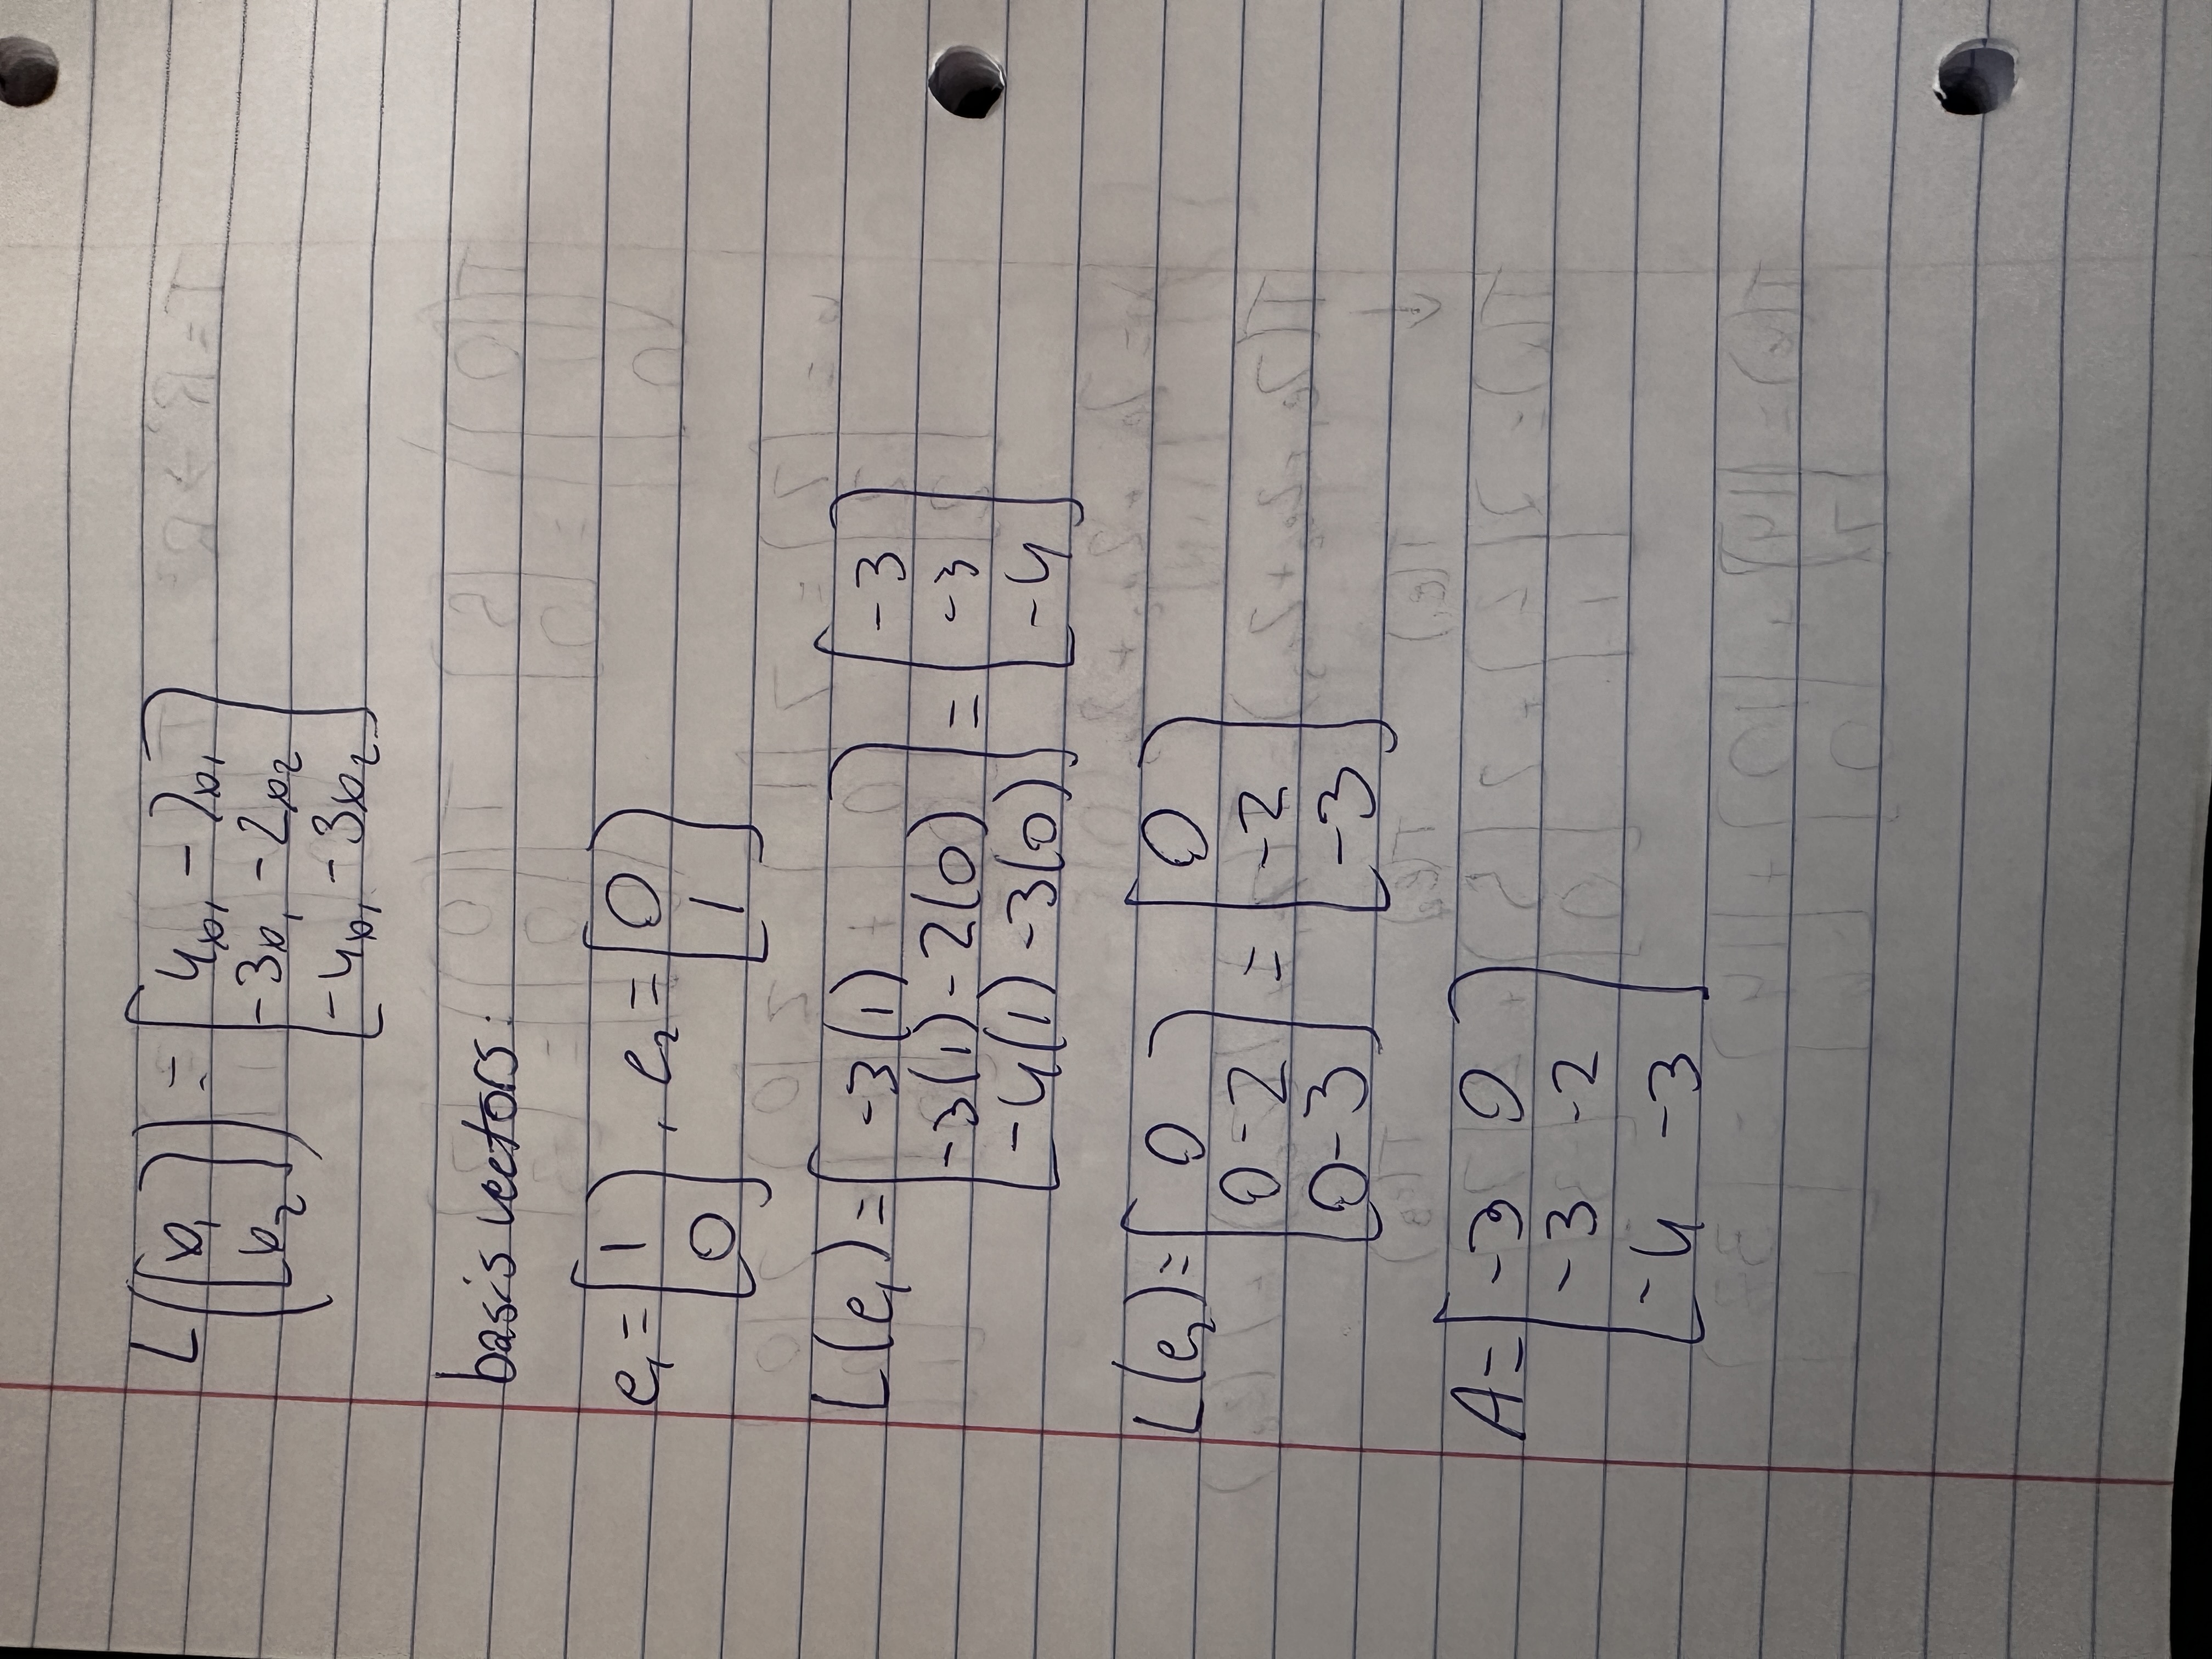 L([x₁ x₂]) = [4x₁ - 7x₁
-3x₁ - 2x₂
-4x₁ - 3x₂]
basis vectors:
e₁ = [1 0], e₂ = [0 1]
L(e₁) = [-3(1)
-3(1) - 2(0)
-4(1) - 3(0)] = [-3 -3 -4]
L(e₂) = [0
0 - 2
0 - 3] = [0 -2 -3]
A = [-3 0
-3 -2
-4 -3]